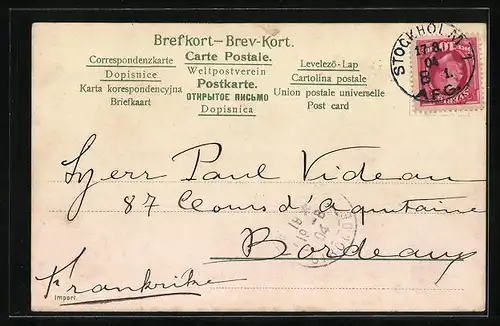 Brefkort—Brev-Kort.
Correspondenzkarte Carte Postale. Levelező-Lap
Dopisnice Weltpostverein Cartolina postale
Karta korespondencyjna Postkarte. Union postale universelle
Briefkaart ОТКРЫТОЕ ПИСЬМО Post card
Dopisnica
STOCKHOLM 1
17.8.
04
1.
AFG.
Herr Paul Videau
87 Cours d'Aquitaine
Bordeaux
Frankrike
Import.